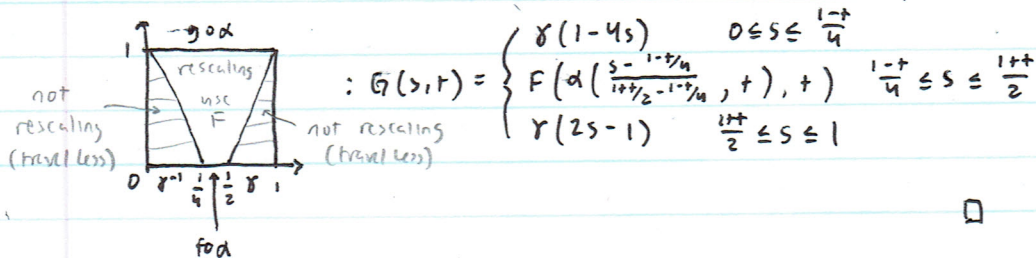 1 → g∘α
rescaling
use
F
not
rescaling
(travel less)
not rescaling
(travel less)
0 γ⁻¹ 1/4 1/2 γ 1
f∘α
: G(s,t) = { γ(1-4s) 0≤s≤ (1-t)/4
F(α( (s - 1-t/4)/(1+t/2 - 1-t/4) , t), t) (1-t)/4 ≤ s ≤ (1+t)/2
γ(2s-1) (1+t)/2 ≤ s ≤ 1
□